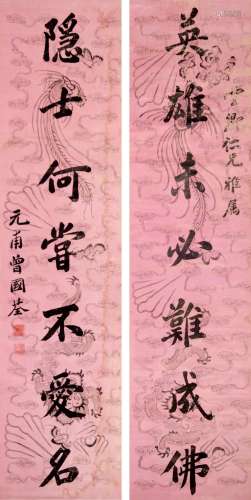 英雄未必難成佛
仁兄雅属
隱士何嘗不愛名
元甫曾國荃